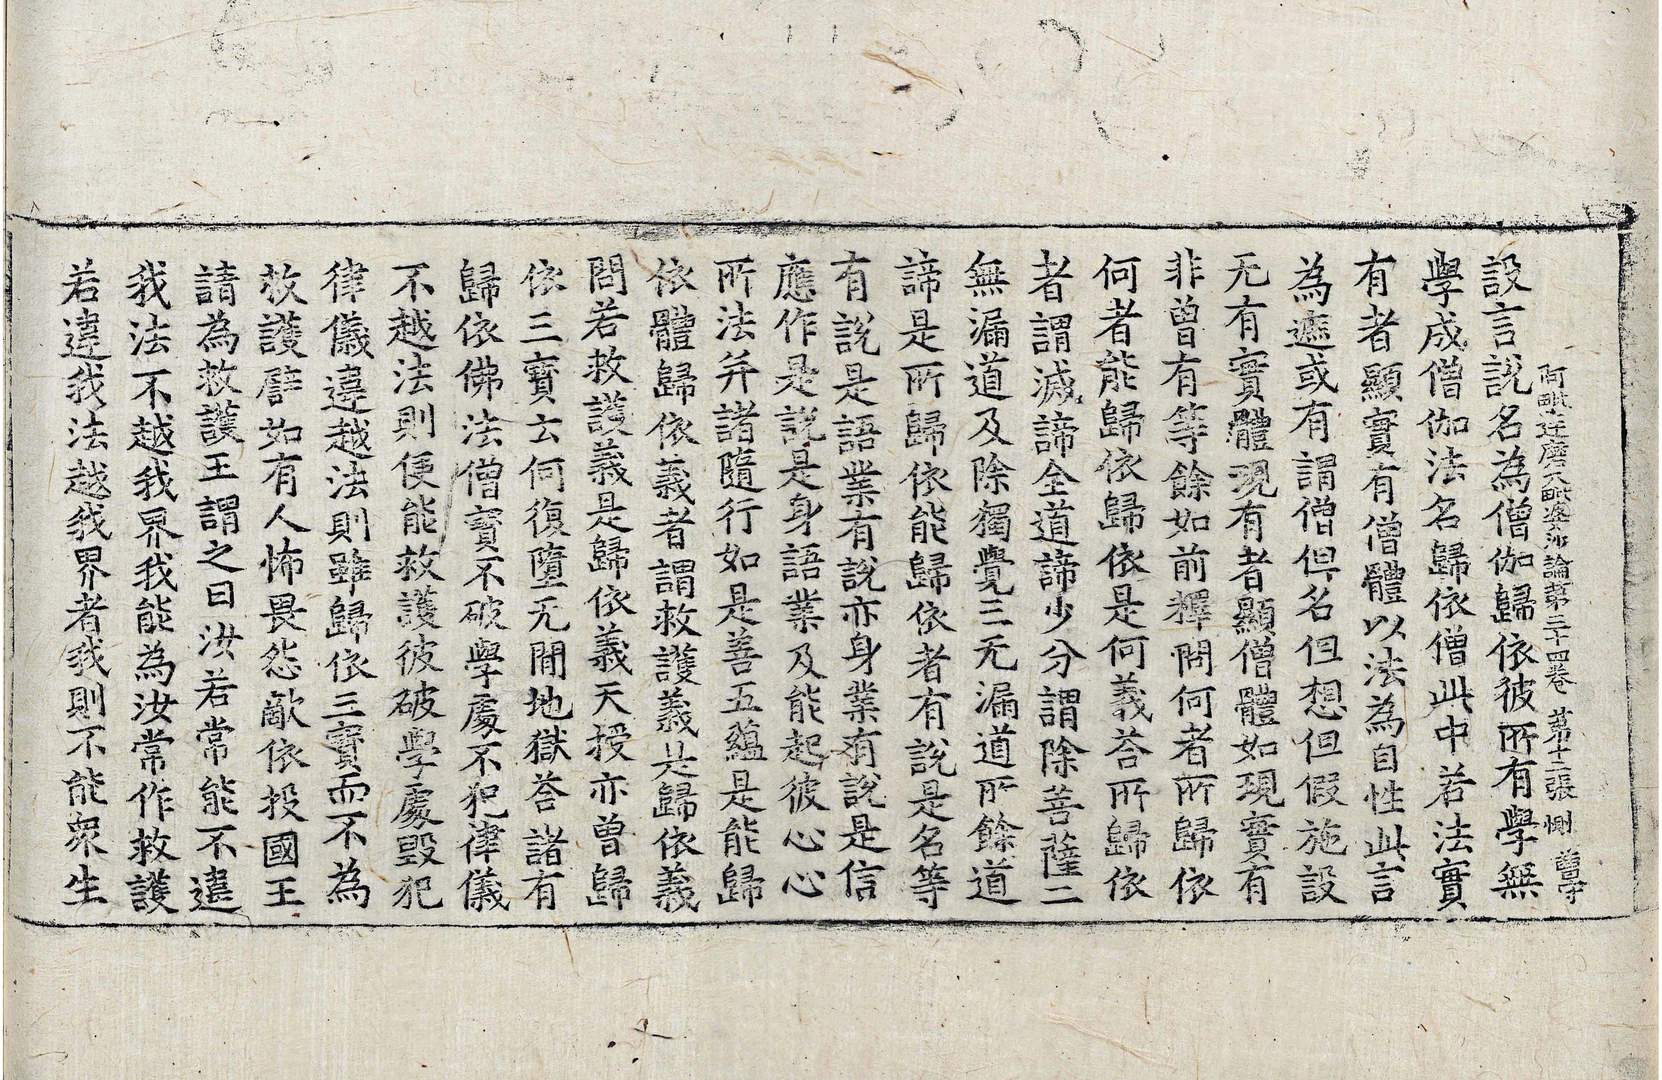 阿毗達磨大毗婆沙論第三十四卷 第十二張 惻 曹字
設言說名為僧伽歸依彼所有學無
學成僧伽法名歸依僧此中若法實
有者顯實有僧體以法為自性此言
為遮或有謂僧但名但想但假施設
无有實體現有者顯僧體如現實有
非曾有等餘如前釋問何者所歸依
何者能歸依歸依是何義荅所歸依
者謂滅諦全道諦少分謂除菩薩二
無漏道及除獨覺三无漏道所餘道
諦是所歸依能歸依者有說是名等
有說是語業有說亦身業有說是信
應作是說是身語業及能起彼心心
所法并諸隨行如是善五蘊是能歸
依體歸依義者謂救護義是歸依義
問若救護義是歸依義天授亦曾歸
依三寶云何復墮无間地獄荅諸有
歸依佛法僧寶不破學處不犯律儀
不越法則便能救護彼破學處毀犯
律儀違越法則雖歸依三寶而不為
救護譬如有人怖畏怨敵依投國王
請為救護王謂之曰汝若常能不違
我法不越我界我能為汝常作救護
若違我法越我界者我則不能衆生